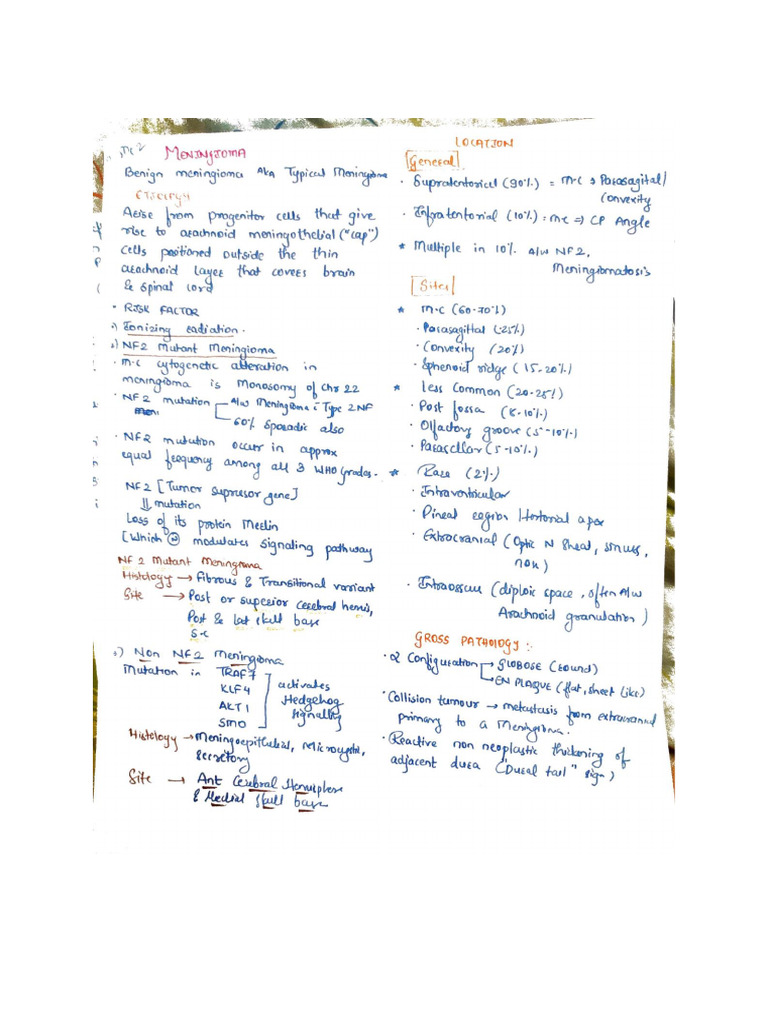 MENINGIOMA
Benign meningioma AKA Typical Meningioma
Arise from progenitor cells that give
rise to arachnoid meningothelial ("cap")
cells positioned outside the thin
arachnoid layer that covers brain
& spinal cord
• RISK FACTOR
Ionizing radiation.
NF2 Mutant Meningioma
• M.C cytogenetic alteration in
meningioma is Monosomy of Chr 22
• NF2 mutation A/w Meningioma c̄ Type 2 NF
60% Sporadic also
• NF2 mutation occur in approx
equal frequency among all 3 WHO Grades.
NF2 [Tumor supresor gene]
⇓ mutation
Loss of its protein Merlin
[Which Ⓝ modulates signaling pathway
NF2 Mutant Meningioma
Histology → Fibrous & Transitional variant
Site → Post or superior cerebral hemis,
Post & Lat skull base
S.C
Non NF2 Meningioma
Mutation in TRAF7
KLF4
AKT1
SMO
activates
Hedgehog
signalling
Histology → Meningoepithelial, Microcystic,
secretory
Site → Ant Cerebral Hemisphere
& Medial Skull base
LOCATION
General
• Supratentorial (90%) = M.C → Parasagital/
Convexity
• Infratentorial (10%) = MC ⇒ CP Angle
* Multiple in 10% A/w NF2,
Meningiomatosis
Sites
* M.C (60-70%)
• Parasagittal (25%)
• Convexity (20%)
• Sphenoid ridge (15-20%)
* Less Common (20-25%)
• Post fossa (8-10%)
• Olfactory groove (5-10%)
• Parasellar (5-10%)
* Rare (2%)
• Intraventricular
• Pineal region / tentorial apex
• Extracranial (Optic N Sheat, sinuses,
nose)
• Intraosseus (diploic space, often A/w
Arachnoid granulation)
GROSS PATHOLOGY :-
• 2 Configuration → GLOBOSE (round)
→ EN PLAQUE (flat, sheet like)
• Collision tumour → metastasis from extracranial
primary to a Meningioma.
• Reactive non neoplastic thickening of
adjacent dura ("Dural tail" sign)